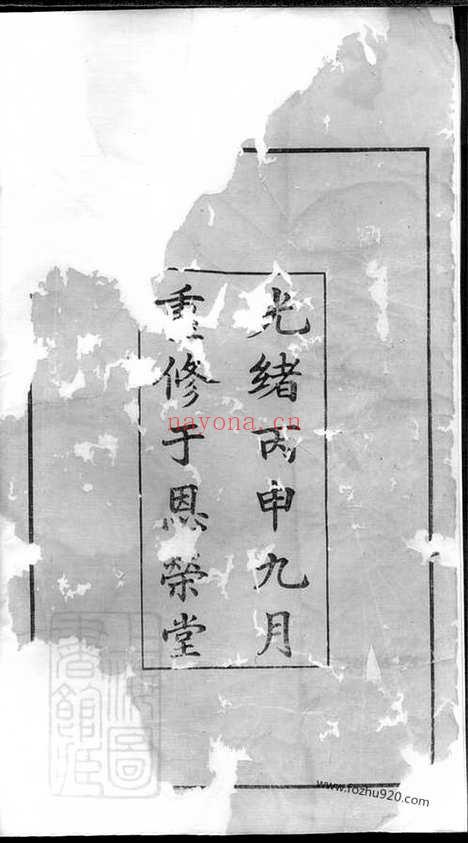 光緒丙申九月
重修于恩榮堂
nayona.cn
www.fozhu920.com